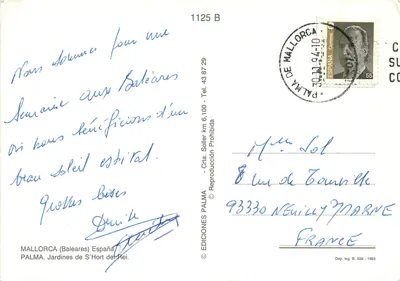 1125 B
Nous sommes pour une
semaine aux Baléares
où nous bénéficions d'un
beau soleil estival.
Grosses bises
Denise
MALLORCA (Baleares) España
PALMA. Jardines de S'Hort del Rei.
© EDICIONES PALMA - Ctra. Soller km 6,100 - Tel. 43 87 29
© Reproducción Prohibida
PALMA DE MALLORCA
ESPAÑA
55
C
SU
CO
8 rue de Tourville
93330 NEUILLY/MARNE
FRANCE
Dep. leg. B.